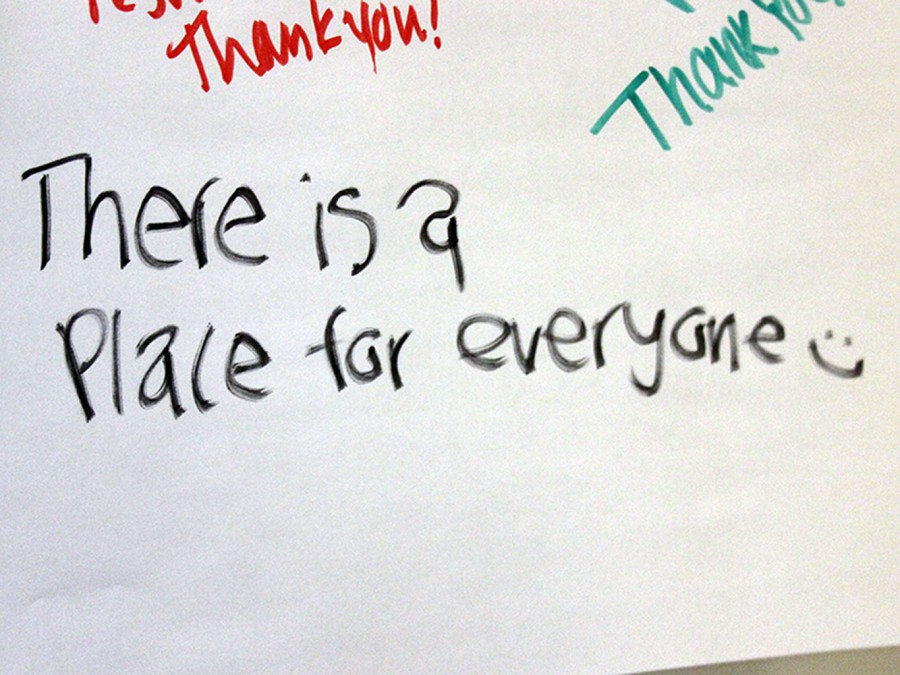 Thank you!
Thank you
There is a
Place for everyone :)